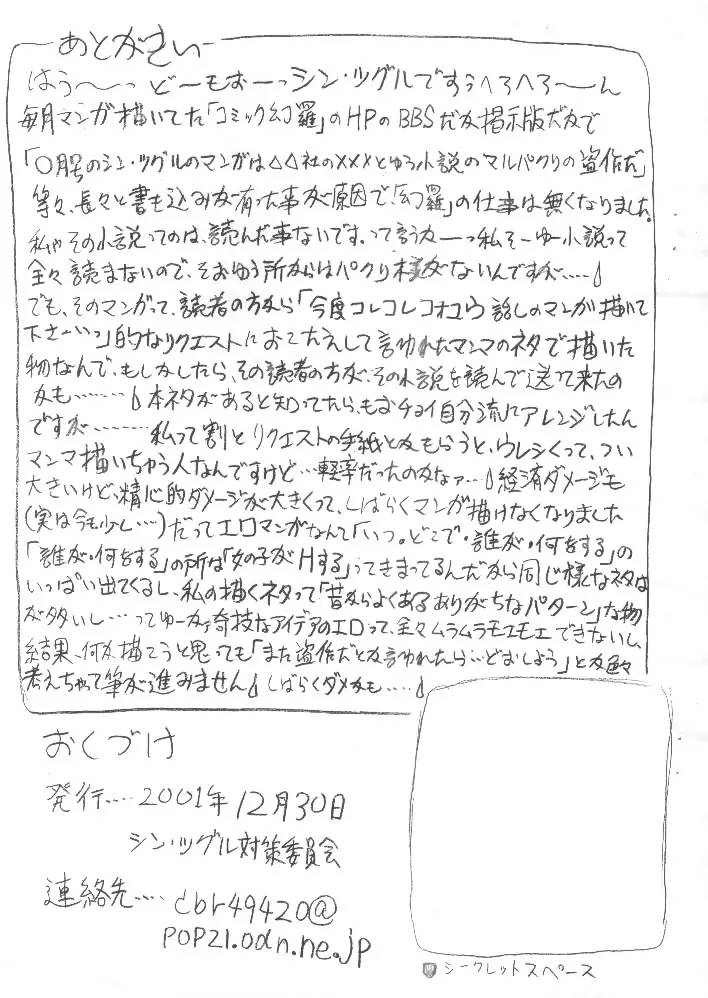 あとがきぃ
はう〜っ どーもぉーっシン・ツグルですぅへろへろ〜ん
毎月マンガ描いてた「コミック幻羅」のHPのBBSだか掲示版だかで
「○月号のシン・ツグルのマンガは△△社の×××とゆう小説のマルパクリの盗作だ」
等々、長々と書き込みが有った事が原因で「幻羅」の仕事は無くなりました。
私やその小説ってのは、読んだ事ないです、って言うかーっ私そーゆー小説って
全々読まないので、そおゆう所からはパクり様がないんですが……
でも、そのマンガって、読者の方から「今度コレコレコオユウ話しのマンガ描いて
下さーい」的なリクエストにおこたえして言われたマンマのネタで描いた
物なんで、もしかしたら、その読者の方が、その小説を読んで送って来たの
かも……… 本ネタがあると知ってたら、もおチョイ自分流にアレンジしたん
ですが……… 私って割とリクエストの手紙とかもらうと、ウレシくって、つい
マンマ描いちゃう人なんですけど…軽率だったのかなァ… 経済ダメージも
大きいけど、精心的ダメージが大きくって、しばらくマンガ描けなくなりました
(実は今も少し…)だってエロマンガなんて「いつ。どこで・誰が・何をする」の
「誰が・何をする」の所は「女の子がHする」ってきまってるんだから同じ様なネタは
いっぱい出てくるし、私の描くネタって「昔からよくあるありがちなパターン」な物
が多いし…ってゆーかァ奇技なアイデアのエロって、全々ムラムラモエモエできないし、
結果、何か描こうと思っても「また盗作だとか言われたら…どおしよう」とか色々
考えちゃって筆が進みません しばらくダメかも……
おくづけ
発行……2001年12月30日
シン・ツグル対策委員会
連絡先……cbr49420@
POP21.odn.ne.jp
シークレットスペース